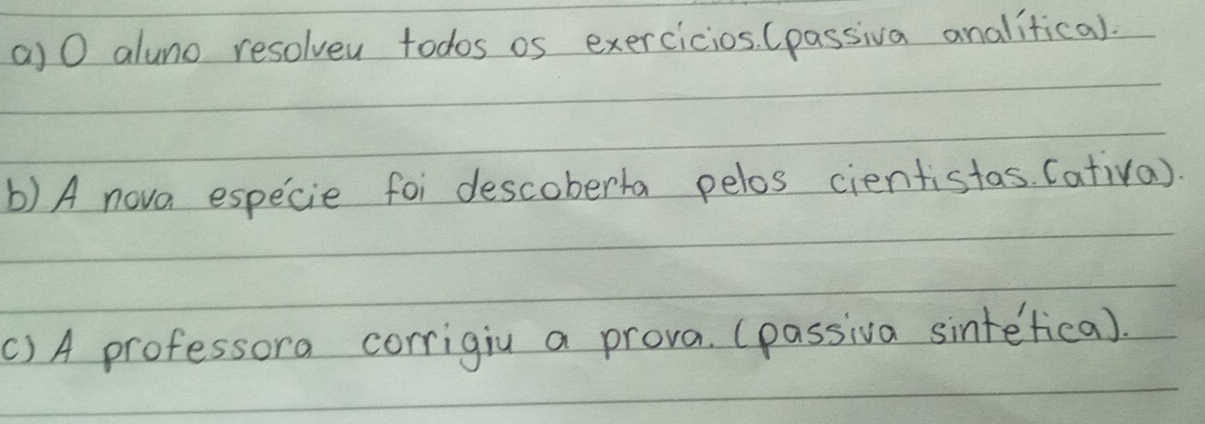 a) O aluno resolveu todos os exercícios. (passiva analítica).
b) A nova espécie foi descoberta pelos cientistas. (ativa).
c) A professora corrigiu a prova. (passiva sintética).